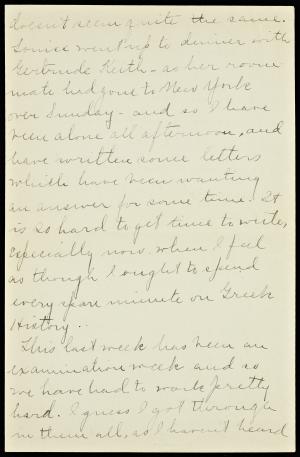 doesn't seem quite the same.
Louise went up to dinner with
Gertrude Keith - as her room
mate had gone to New York
over Sunday - and so I have
been alone all afternoon, and
have written some letters
which have been wanting
an answer for some time. It
is so hard to get time to write,
especially now when I feel
as though I ought to spend
every spare minute on Greek
History..
This last week has been an
examination week and so
we have had to work pretty
hard. I guess I got through
in them all, as I haven't heard